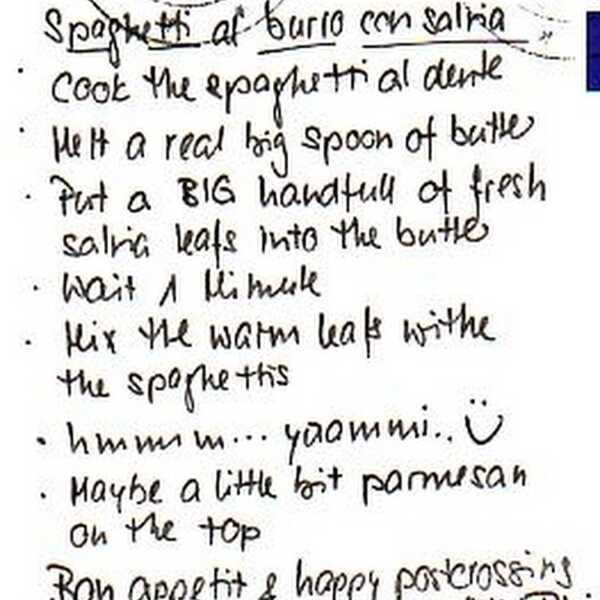 Spaghetti al burro con salvia
· Cook the spaghetti al dente
· Melt a real big spoon of butter
· Put a BIG handfull of fresh
salvia leafs into the butter
· Wait 1 Minute
· Mix the warm leafs withe
the spaghettis
· hmmmm... yaammi.. Ü
· Maybe a little bit parmesan
on the top
Bon appetit & happy postcrossing